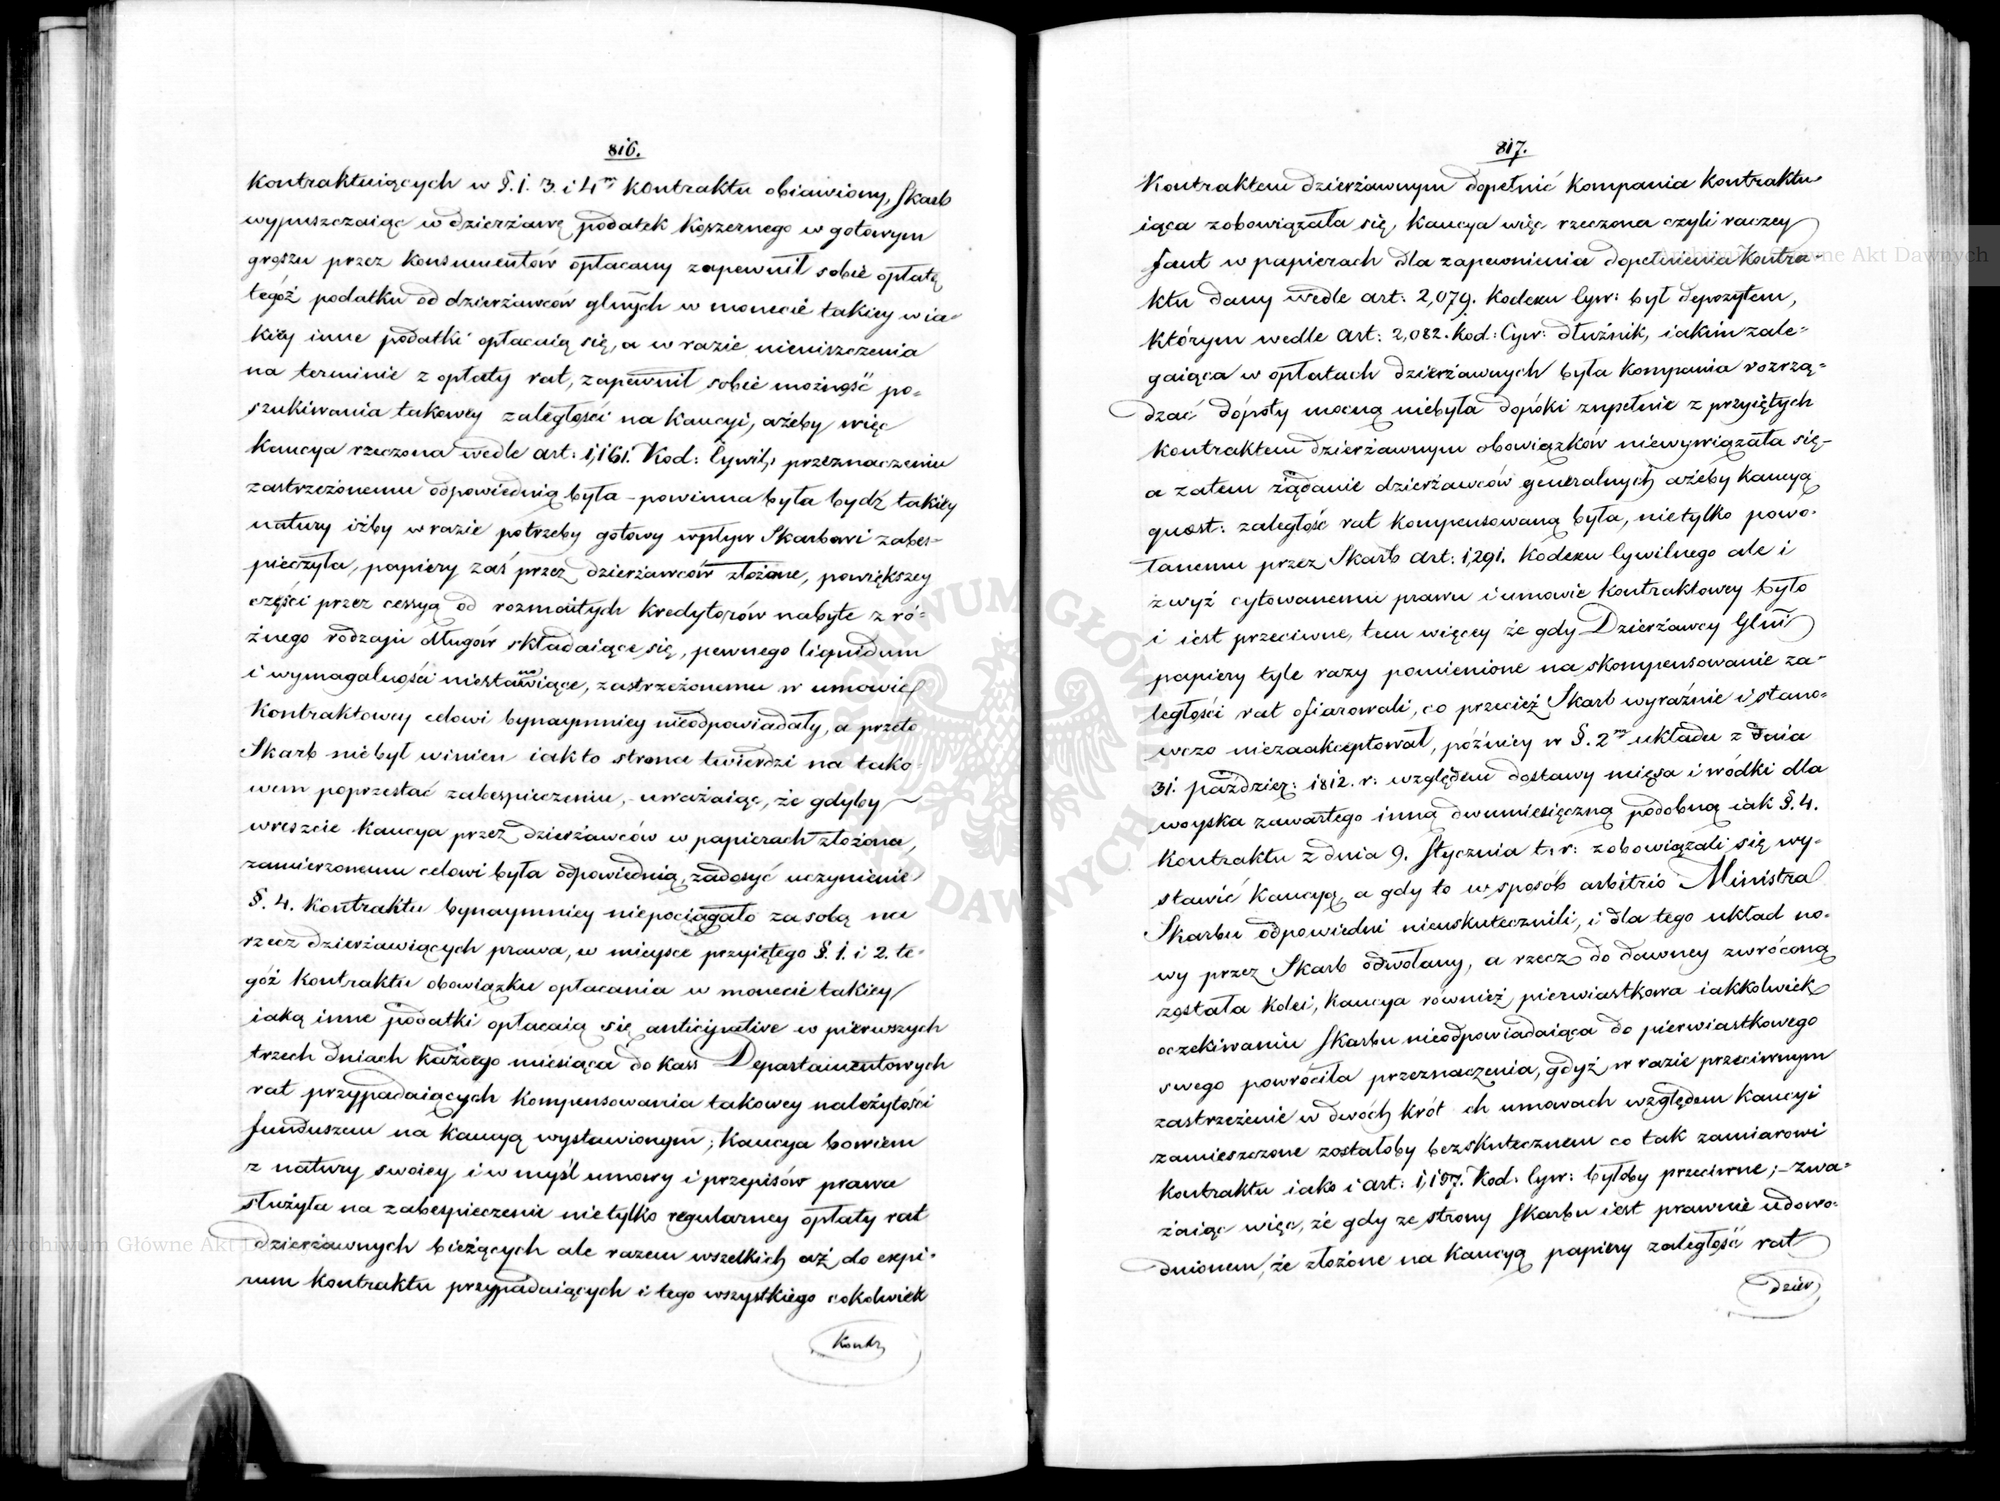 816.
Kontraktuiących w §. 1. 3. i 4m kontraktu obiawiony, Skarb
wypuszczaiąc w dzierżawę podatek Koszernego w gotowym
groszu przez konsumentów opłacany zapewnił sobie opłatę
tegóż podatku od dzierżawców glnych w monecie takiey w ia-
kiéy inne podatki opłacaią się, a w razie nieuiszczenia
na terminie z opłaty rat, zapewnił sobie możność po-
szukiwania takowey zaległości na Kaucyi, ażeby więc
kaucya rzeczona wedle art: 1,161. Kod: Cywil: przeznaczeniu
zastrzeżonemu odpowiednią była – powinna była bydź takiéy
natury iżby w razie potrzeby gotowy wpływ Skarbowi zabes-
pieczyła, papiery zaś przez dzierżawców złożone, powiększey
części przez cessyą od rozmaitych kredytorów nabyte z ró-
żnego rodzaju długów składaiące się, pewnego liquidum
i wymagalności niestanowiące, zastrzeżonemu w umowie
Kontraktowey celowi bynaymniey nieodpowiadały, a przeto
Skarb niebył winien iak to strona twierdzi na tako-
wem poprzestać zabespieczeniu, – uważaiąc, że gdyby
wreszcie kaucya przez dzierżawców w papierach złożona,
zamierzonemu celowi była odpowiednią, zadosyć uczynienie
§. 4. Kontraktu bynaymniey niepociągało za sobą na
rzecz dzierżawiących prawa, w mieysce przyiętego §. 1. i 2. te-
góż kontraktu obowiązku opłacania w monecie takiey
iaką inne podatki opłacaią się anticipative w pierwszych
trzech dniach każdego miesiąca do kass Departamentowych
rat przypadaiących kompensowania takowey należytości
funduszem na kaucyą wystawionym; kaucya bowiem
z natury swoiey i w myśl umowy i przepisów prawa
służyła na zabespieczenie nietylko regularney opłaty rat
dzierżawnych bieżących ale razem wszelkich aż do expi-
rum kontraktu przypadaiących i tego wszystkiego cokolwiek
Kontr
817.
Kontraktem dzierżawnym dopełnić kompania kontraktu-
iąca zobowiązała się, kaucya więc rzeczona czyli raczey
fant w papierach dla zapewnienia dopełnienia kontra-
ktu dany wedle art: 2,079. Kodexu Cyw: był depozytem,
którym wedle art: 2,082. Kod: Cyw: dłużnik, iakim zale-
gaiąca w opłatach dzierżawnych była kompania rozrzą-
dzać dópóty mocną niebyła dopóki zupełnie z przyiętych
kontraktem dzierżawnym obowiązków niewywiązała się –
a zatem żądanie dzierżawców generalnych ażeby kaucyą
quæst: zaległość rat kompensowaną była, nietylko powo-
łanemu przez Skarb art: 1,291. Kodexu Cywilnego ale i
zwyż cytowanemu prawu i umowie kontraktowey było
i iest przeciwne, tem więcey że gdy Dzierżawcy Glni
papiery tyle razy pomienione na skompensowanie za-
ległości rat ofiarowali, co przecież Skarb wyraźnie i stano-
wczo niezaakceptował, późniey w §. 2m układu z dnia
31. paździer: 1812. r: względem dostawy mięsa i wódki dla
woyska zawartego inną dwumiesięczną podobną iak §. 4.
kontraktu z dnia 9. Stycznia t. r: zobowiązali się wy-
stawić kaucyą, a gdy to w sposób arbitrio Ministra
Skarbu odpowiedni nieuskutecznili, i dla tego układ no-
wy przez Skarb odwołany, a rzecz do dawney zwróconą
została kolei, kaucya również pierwiastkowa iakkolwiek
oczekiwaniu Skarbu nieodpowiadaiąca do pierwiastkowego
swego powróciła przeznaczenia, gdyż w razie przeciwnym
zastrzeżenie w dwóch krót ch umowach względem kaucyi
zamieszczone zostałoby bezskutecznem co tak zamiarowi
kontraktu iako i art: 1,157. Kod: Cyw: byłoby przeciwne; – zwa-
żaiąc więc, że gdy ze strony Skarbu iest prawnie udowo-
dnionem, że złożone na kaucyą papiery zaległość rat
dzier